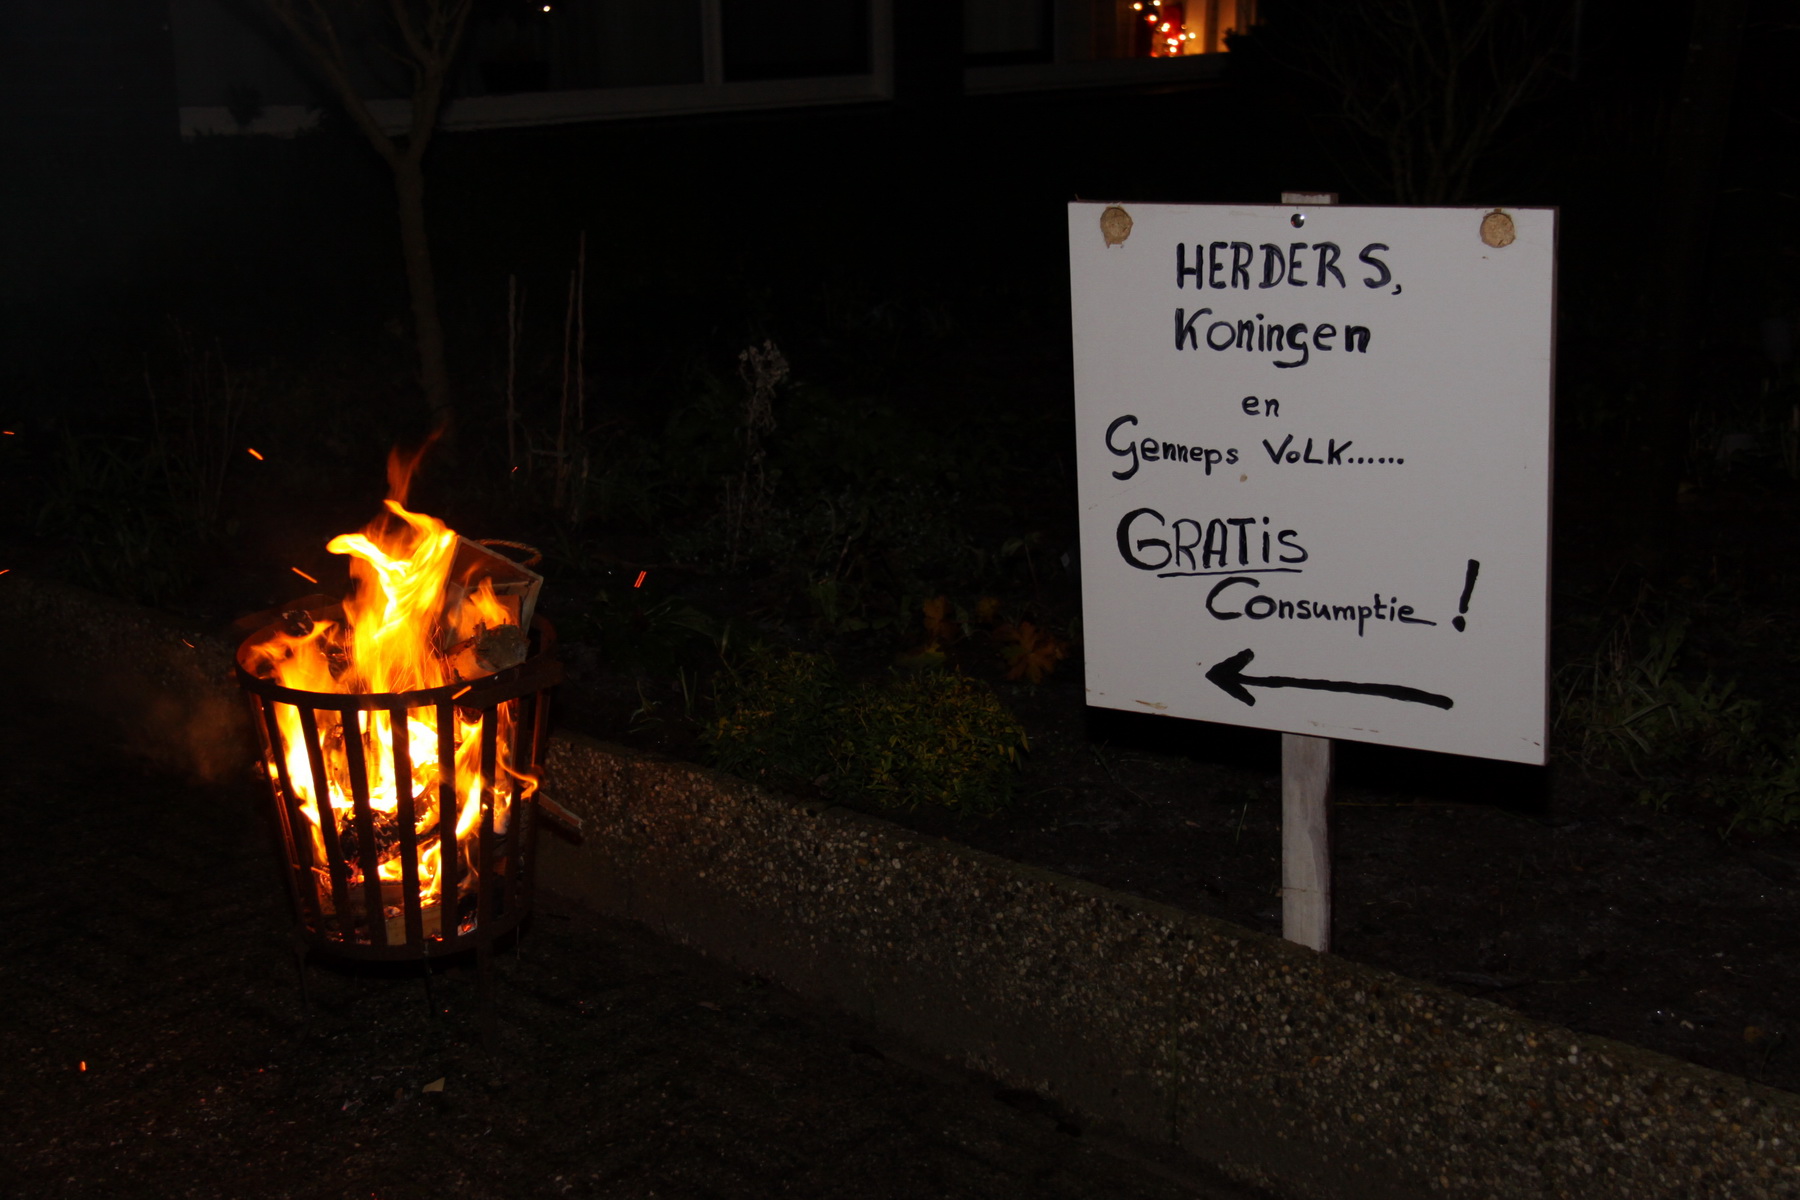 HERDERS,
Koningen
en
Genneps VOLK......
GRATIS
Consumptie!